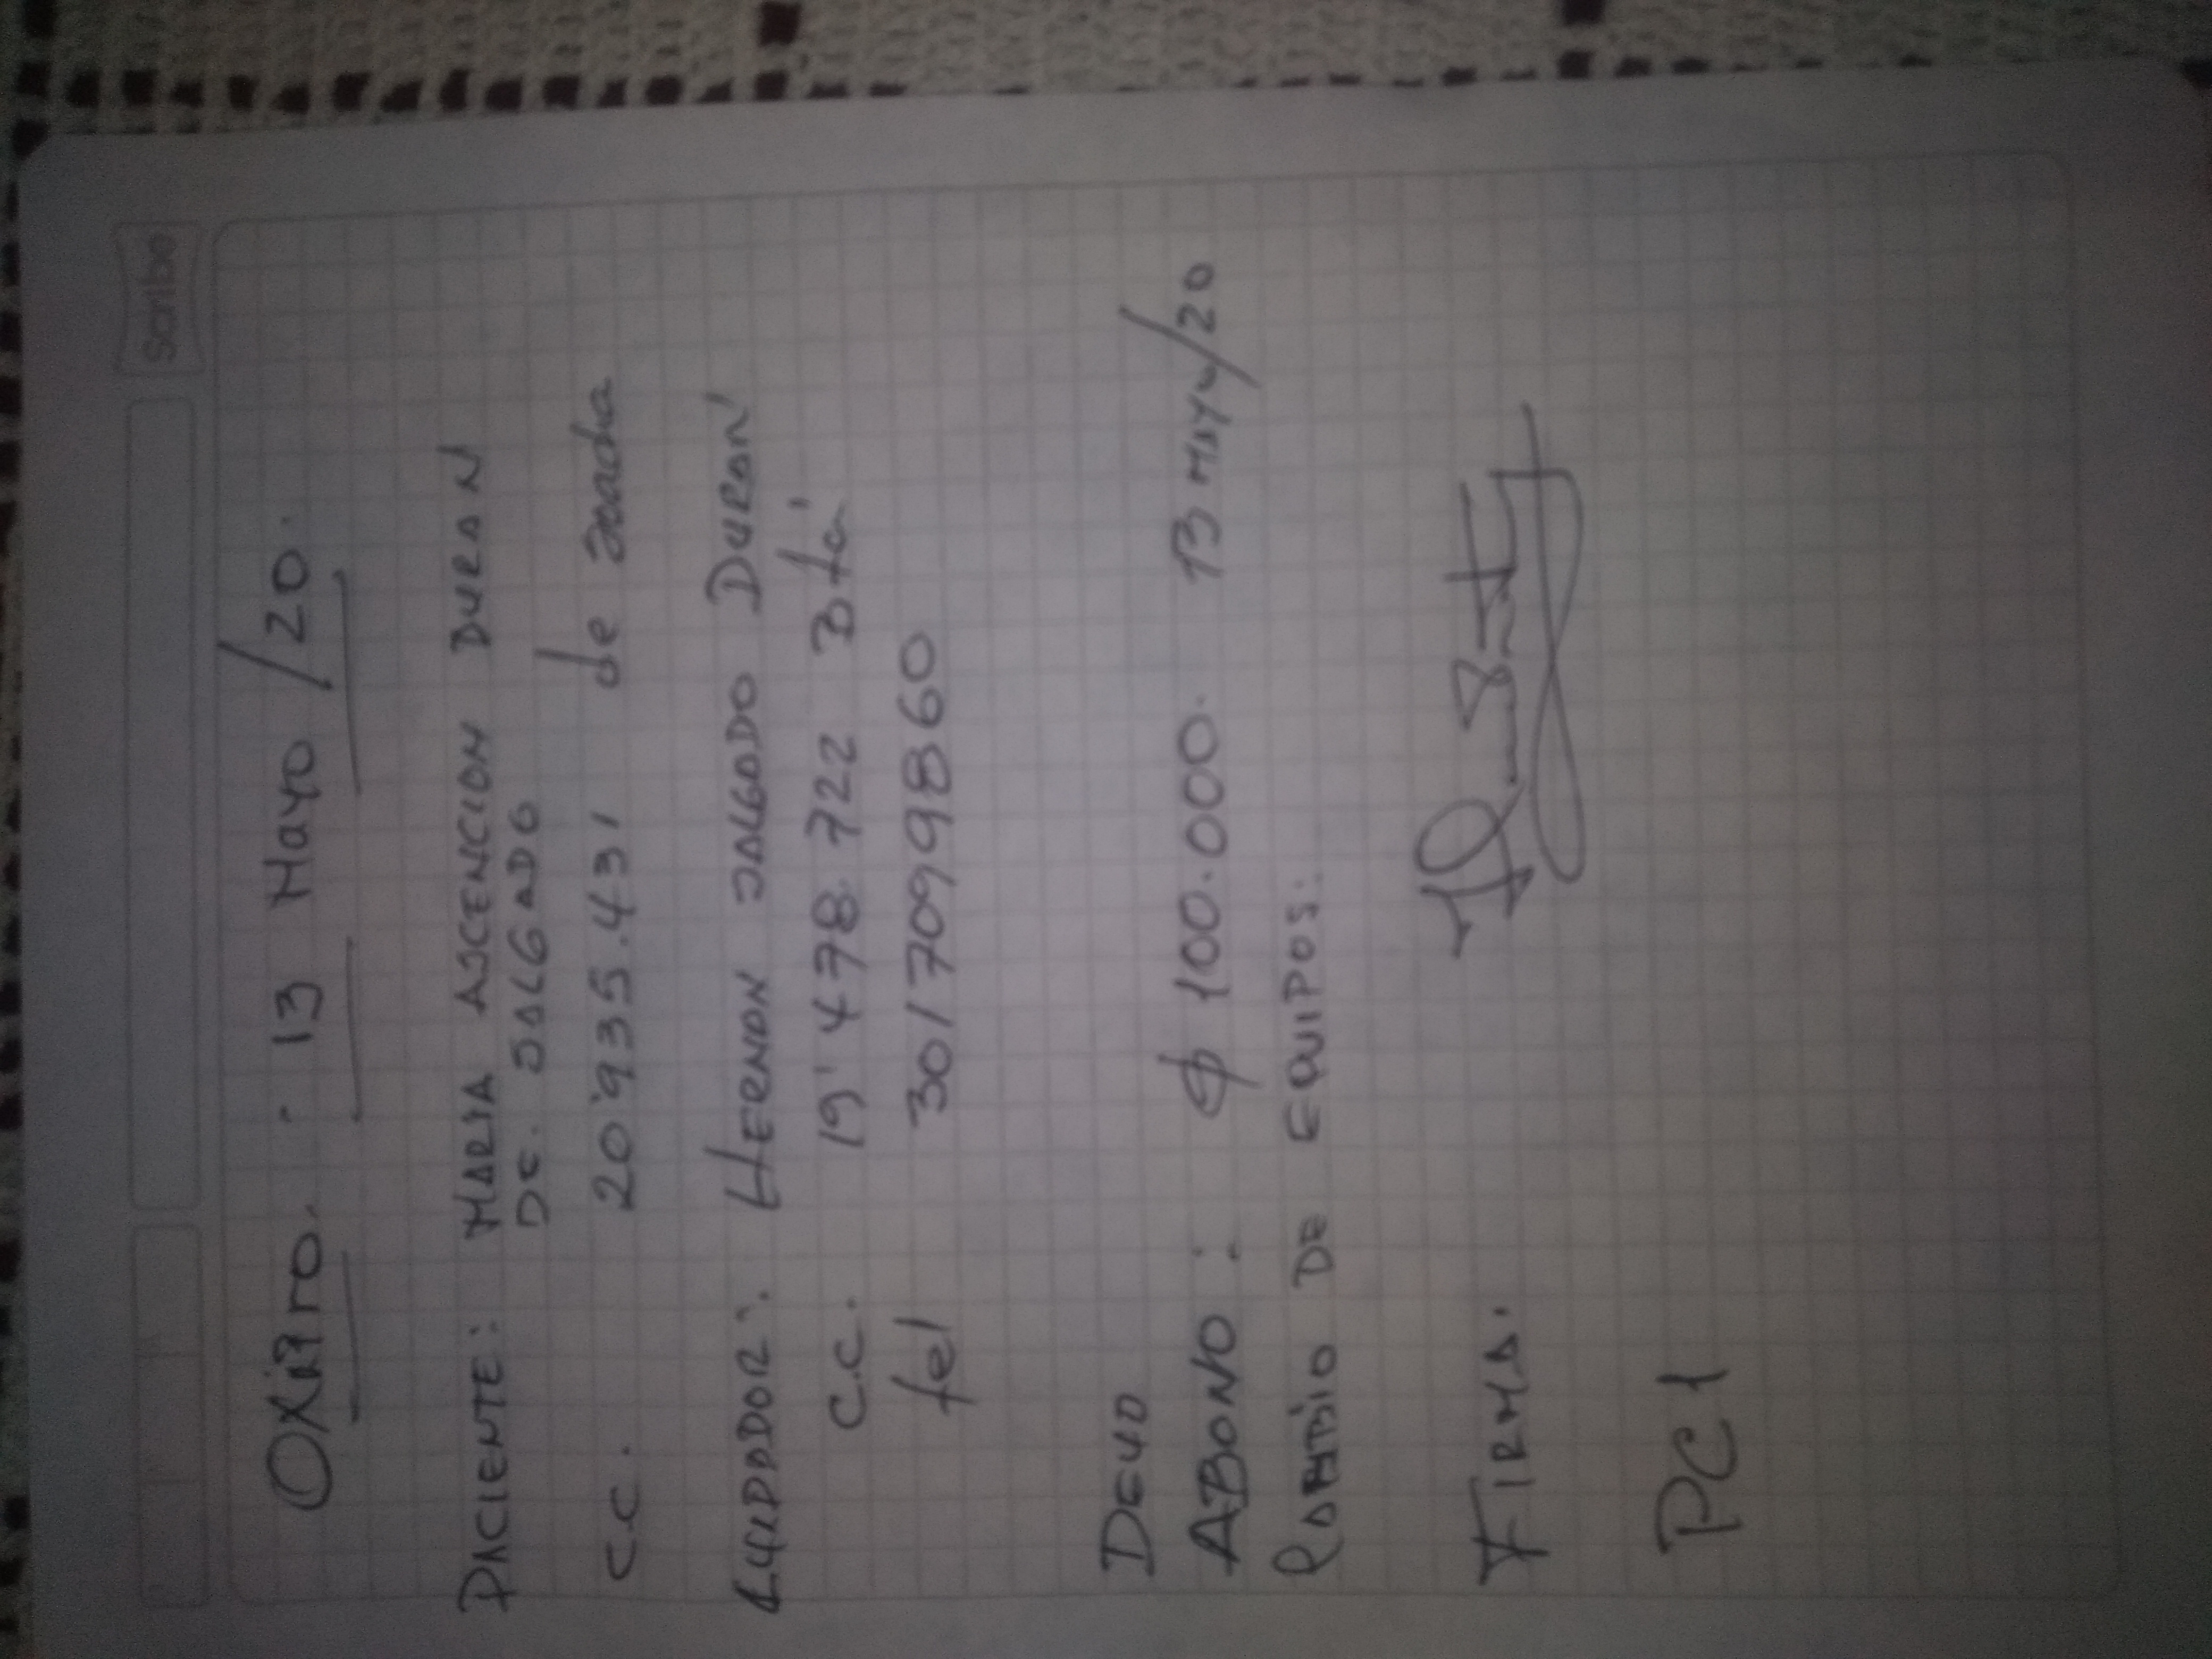 Scribe
OXIPRO. : 13 Mayo /20.
PACIENTE: MARIA ASCENCION DURAN
DE. SALGADO
C.C. 20'935.431 de
CUIDADOR: HERNAN SALGADO DURAN
C.C. 19'478.722 Bta'
tel 3017099860
DEUO
ABONO: $ 100.000. 13 MAYO/20
CAMBIO DE EQUIPOS:
FIRMA.
PC1